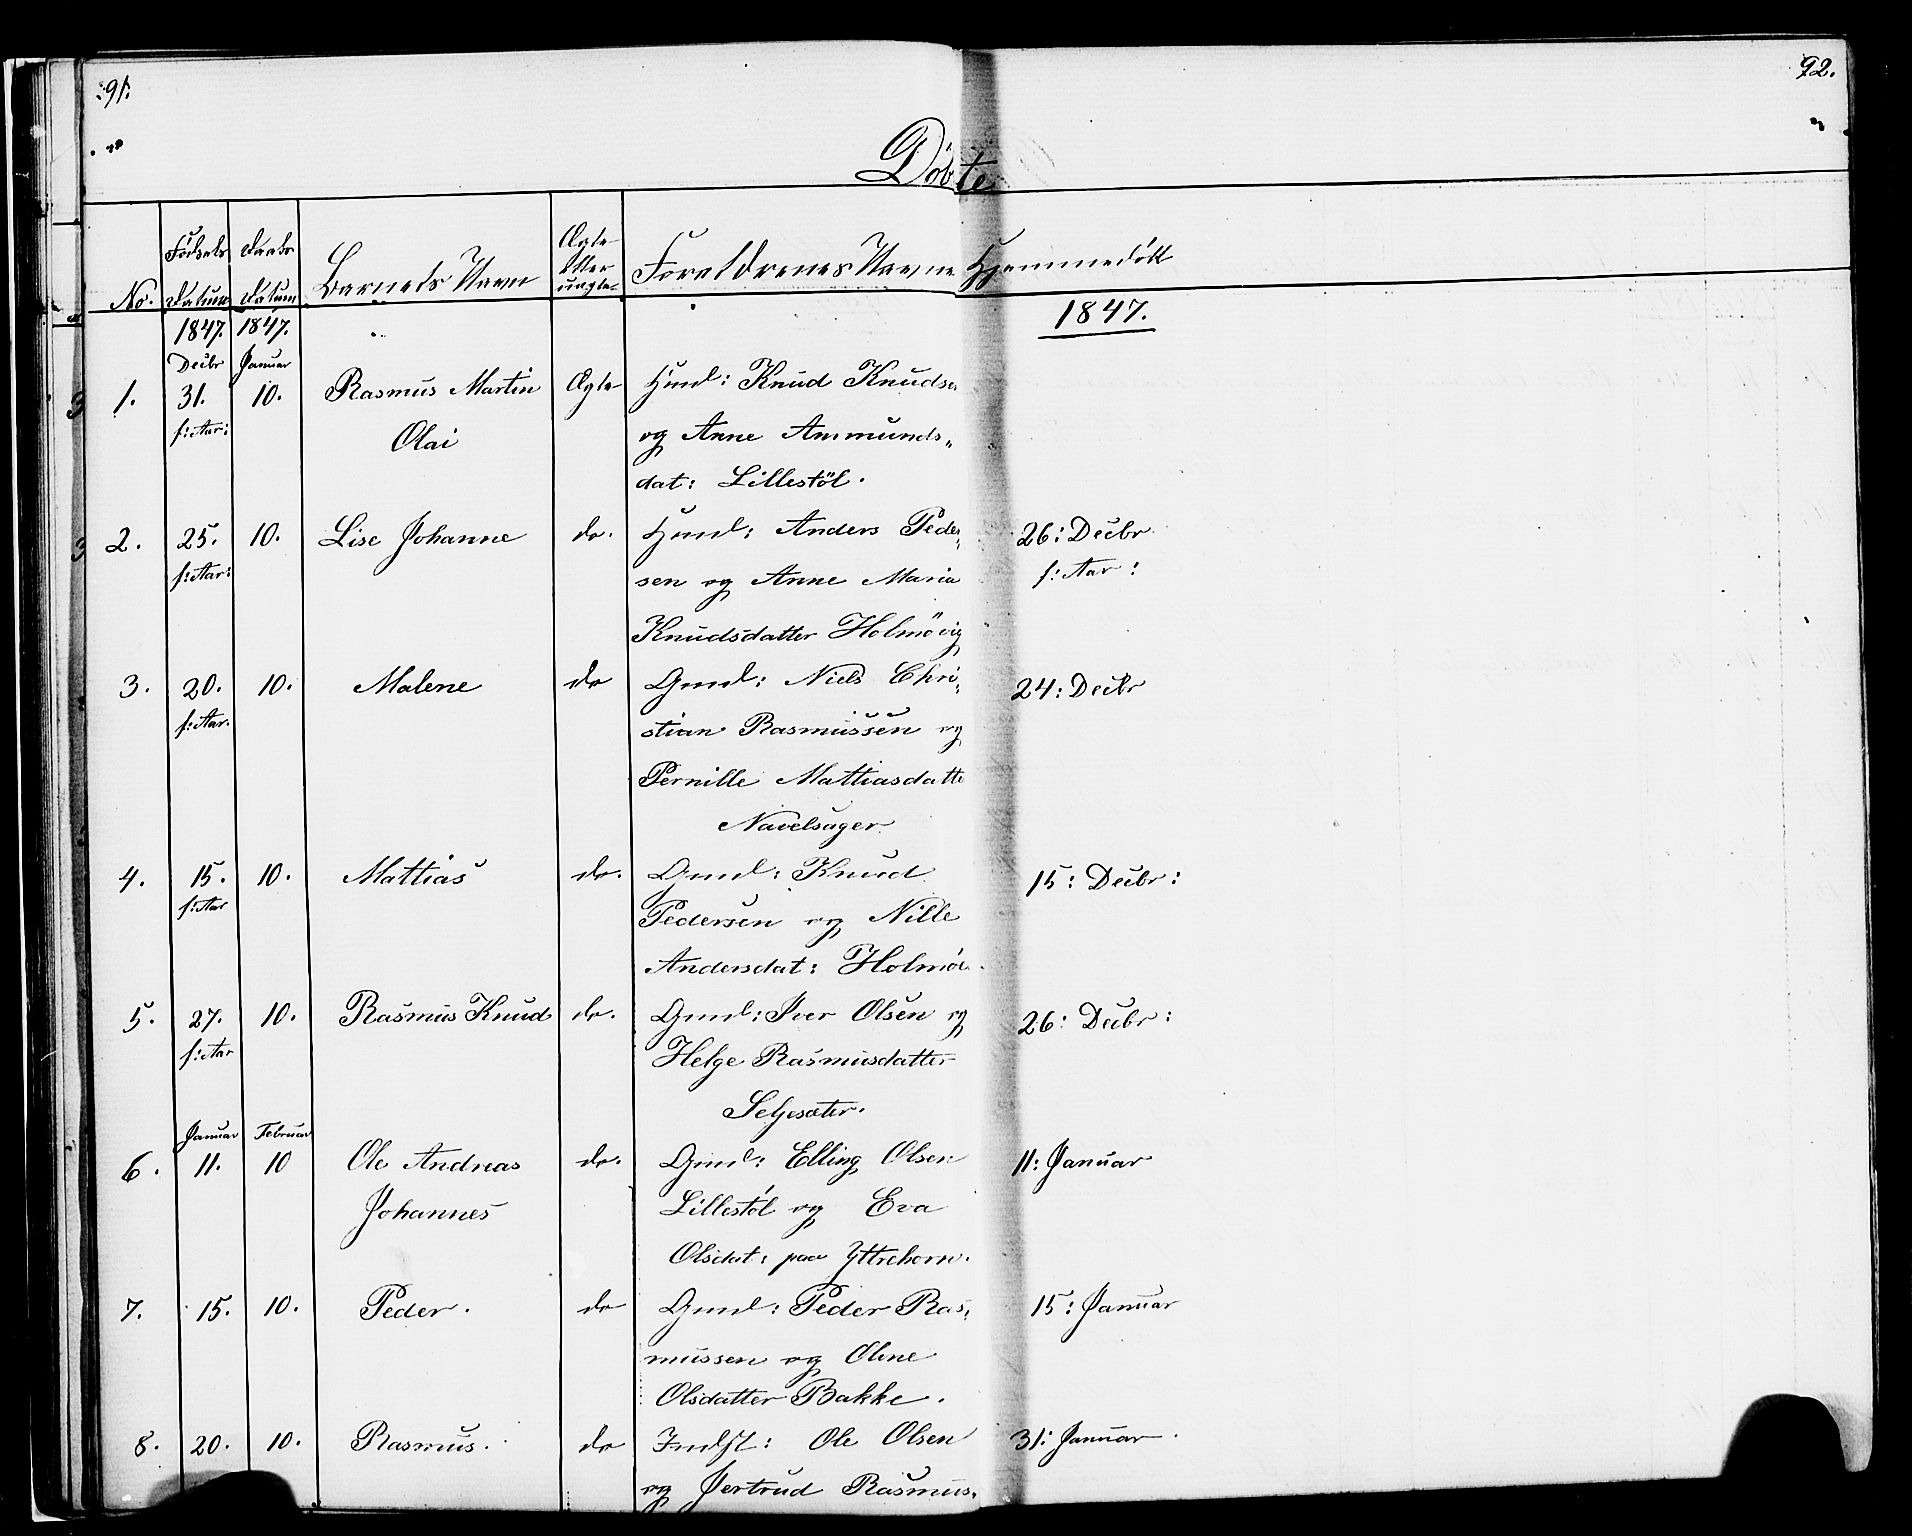 91.
92.
Döbte
No.
Fødsels Datum
Daabs Datum
Barnets Navn
Ægte eller uægte
Foreldrenes Navne
Hjemmedöbt
1847. 1847. 1847.
Decbr Januar
1. 31. 10. Rasmus Martin Ægte Huusm: Knud Knudsen
f: Aar: Olai og Anne Ammunds„
dat: Lillestöl.
2. 25. 10. Lise Johanne do. Huusm: Anders Peder„ 26: Decbr
f: Aar: sen og Anne Maria f: Aar:
Knudsdatter Holmövig
3. 20. 10. Malene do Gmd: Niels Chri„ 24: Decbr
f: Aar. stian Rasmussen og
Pernille Mattiasdatte
Navelsager
4. 15. 10. Mattias do. Gmd: Knud 15: Decbr:
f: Aar Pedersen og Nille
Andersdat: Holmöe.
5. 27. 10. Rasmus Knud do. Gmd: Iver Olsen og 26: Decbr:
f: Aar Helge Rasmusdatter
Seljesæter.
Januar Februar
6. 11. 10 Ole Andreas do. Gmd: Elling Olsen 11: Januar
Johannes Lillestöl og Eva
Olsdat: paa Yttrehorn.
7. 15. 10. Peder. do Gmd: Peder Ras„ 15: Januar
mussen og Oline
Olsdatter Bakke.
8. 20. 10. Rasmus. do Indst: Ole Olsen 31: Januar
og Jertrud Rasmus„